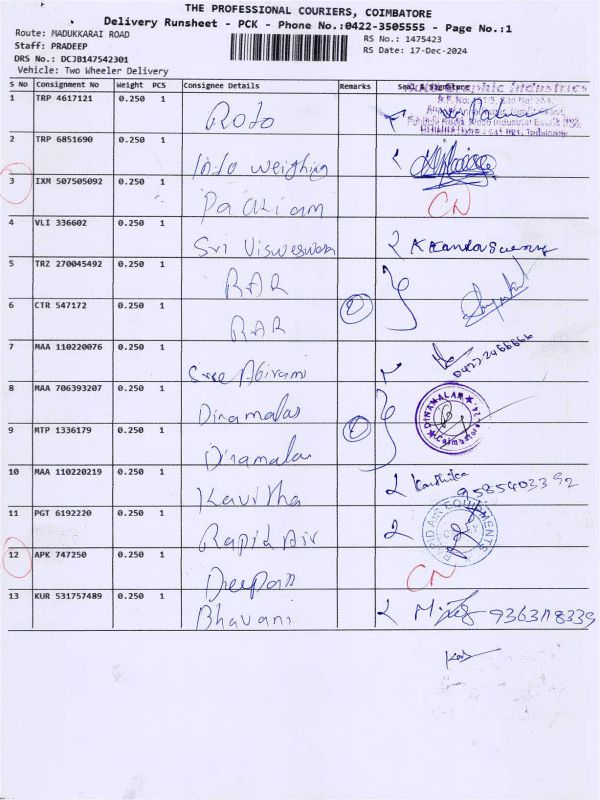 THE PROFESSIONAL COURIERS, COIMBATORE
Delivery Runsheet - PCK - Phone No.:0422-3505555 - Page No.:1
Route: MADUKKARAI ROAD
RS No.: 1475423
Staff: PRADEEP
RS Date: 17-Dec-2024
DRS No.: DCJB147542301
Vehicle: Two Wheeler Delivery
S No Consignment No Weight PCS Consignee Details Remarks Seal & Signature
1 TRP 4617121 0.250 1 Roto
2 TRP 6851690 0.250 1 Info weighing
3 IXM 507505092 0.250 1 Packiam CN
4 VLI 336602 0.250 1 Sri Visweswara
5 TRZ 270045492 0.250 1 RAR
6 CTR 547172 0.250 1 RAR 2
7 MAA 110220076 0.250 1 Sree Abirami 0422-2466666
8 MAA 706393207 0.250 1 Dinamalar DINAMALAR Coimbatore
9 MTP 1336179 0.250 1 Dinamalar
10 MAA 110220219 0.250 1 Kavitha 9585403392
11 PGT 6192220 0.250 1 Rapid Air RAPID AIR EQUIPMENTS
12 APK 747250 0.250 1 Deepan CN
13 KUR 531757489 0.250 1 Bhavani